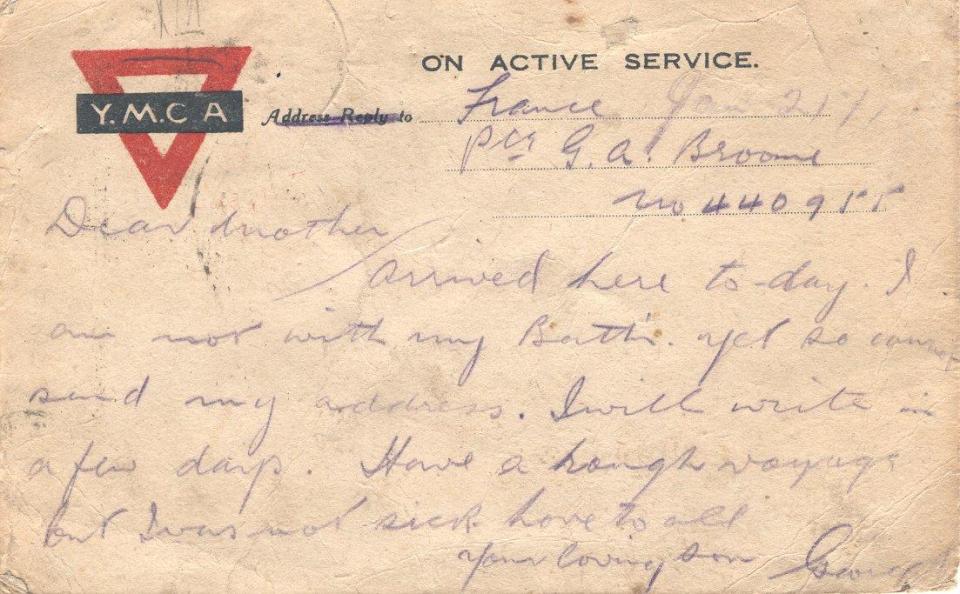 ON ACTIVE SERVICE.
Y.M.C A
Address Reply to France Jan 21/17
Pte G. A. Broome
No 440955
Dear Mother
Arrived here to-day. I
am not with my Batt'n. yet so cannot
send my address. I will write in
a few days. Have a rough voyage
but I was not sick love to all
Your loving son George